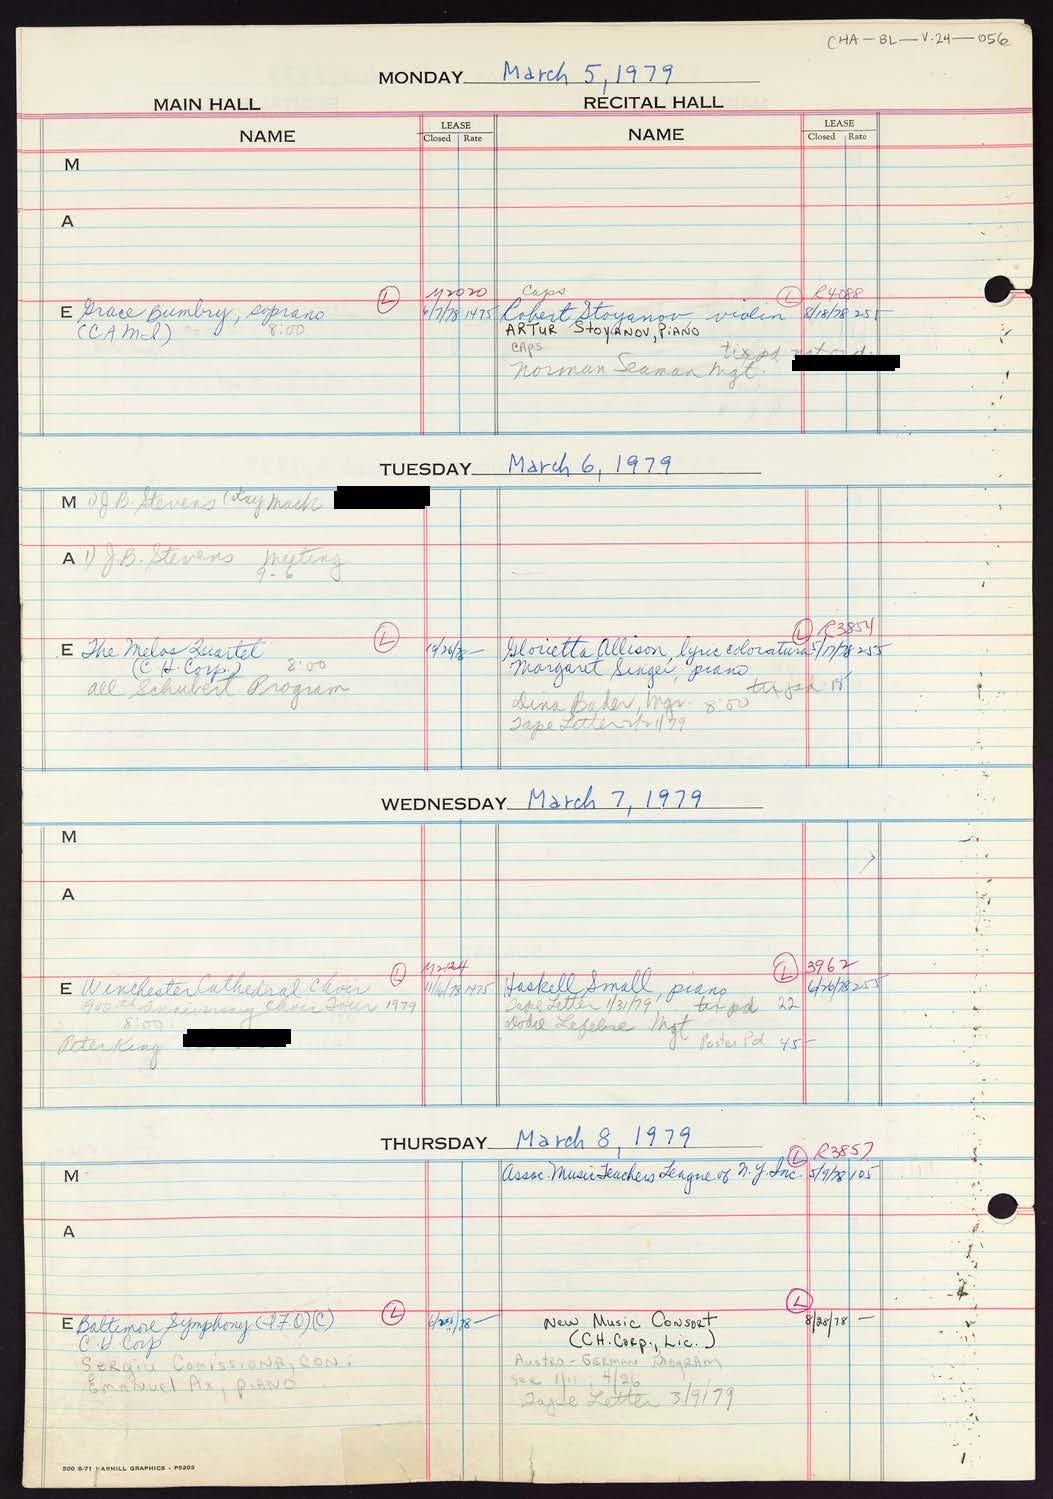 CHA-BL-V.24-056
MONDAY March 5, 1979
MAIN HALL RECITAL HALL
NAME LEASE Closed Rate NAME LEASE Closed Rate
M
A
M2020 Caps R4088
E Grace Bumbry, soprano L 6/7/78 1475 Robert Stoyanov violin L 8/18/78 255
(CAMI) 8:00 ARTUR STOYANOV, PIANO
CAPS tix pd
Norman Seaman Mgt.
TUESDAY March 6, 1979
M 1) J.B. Stevens
A 1) J.B. Stevens Meeting
9-6
R3854
E The Melos Quartet L Glorietta Allison, lyric coloratura L 5/17/78 255
(C.H. Corp.) 8:00 Margaret Singer, piano
all Schubert Program tix pd 18
Dina Bader, Mgr. 8:00
Tape Letter 2/21/79
WEDNESDAY March 7, 1979
M
A
M2124 3962
E Winchester Cathedral Choir L 11/6/78 1475 Haskell Small, piano L 6/26/78 255
900th anniversary Choir Tour 1979 Tape Letter 1/31/79 tix pd 22
8:00 Dodie Lefebre Mgt
Peter King Poster Pd 45-
THURSDAY March 8, 1979
R3857
M Assoc. Music Teachers League of N.Y. Inc. L 5/9/78 105
A
E Baltimore Symphony (IFO)(C) L New Music Consort L 8/28/78 —
C.H. Corp (CH. Corp., Lic.)
Sergiu Comissiona, con. Austro-German Program
Emanuel Ax, piano see 1/11, 4/26
Tape Letter 3/9/79
500 6-71 HARNILL GRAPHICS - P5203